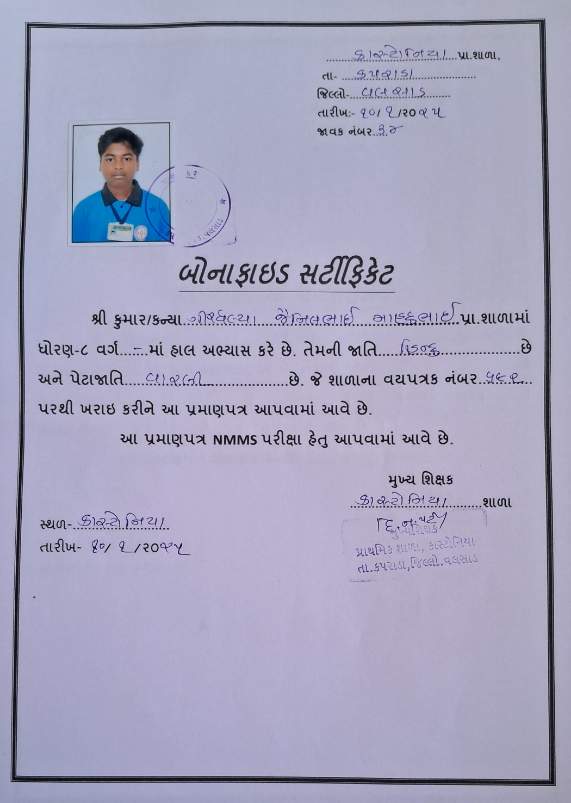 કાસ્ટોનિયા પ્રા.શાળા.
તા- કપરાડા
જિલ્લો- વલસાડ
તારીખ:- ૧૦/ ૧ /૨૦૨૫
જાવક નંબર ૩૪
બોનાફાઇડ સર્ટીફિકેટ
શ્રી કુમાર/કન્યા જૈમિલભાઈ પ્રા.શાળામાં
ધોરણ-૮ વર્ગ - માં હાલ અભ્યાસ કરે છે. તેમની જાતિ હિન્દુ છે
અને પેટાજાતિ વારલી છે. જે શાળાના વયપત્રક નંબર ૫૬૨
પરથી ખરાઇ કરીને આ પ્રમાણપત્ર આપવામાં આવે છે.
આ પ્રમાણપત્ર NMMS પરીક્ષા હેતુ આપવામાં આવે છે.
મુખ્ય શિક્ષક
કાસ્ટોનિયા શાળા
સ્થળ- કાસ્ટોનિયા
તારીખ- ૧૦/ ૧ /૨૦૨૫
પ્રાથમિક શાળા, કાસ્ટોનિયા
તા.કપરાડા,જિલ્લો.વલસાડ